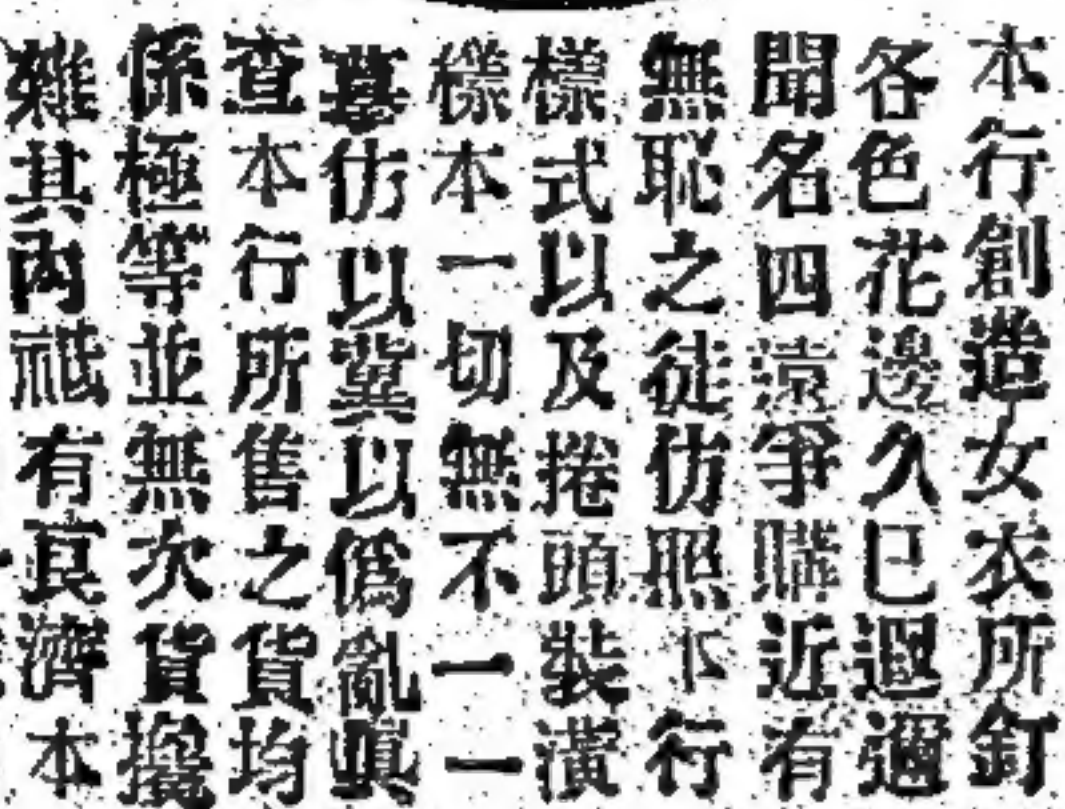 本行創造女衣所釘
各色花邊久已遐邇
聞名四遠爭購近有
無恥之徒仿照本行
樣式以及捲頭裝潢
樣本一切無不一一
摹仿以冀以偽亂眞
查本行所售之貨均
係極等並無次貨攙
雜其內祇有良濟本